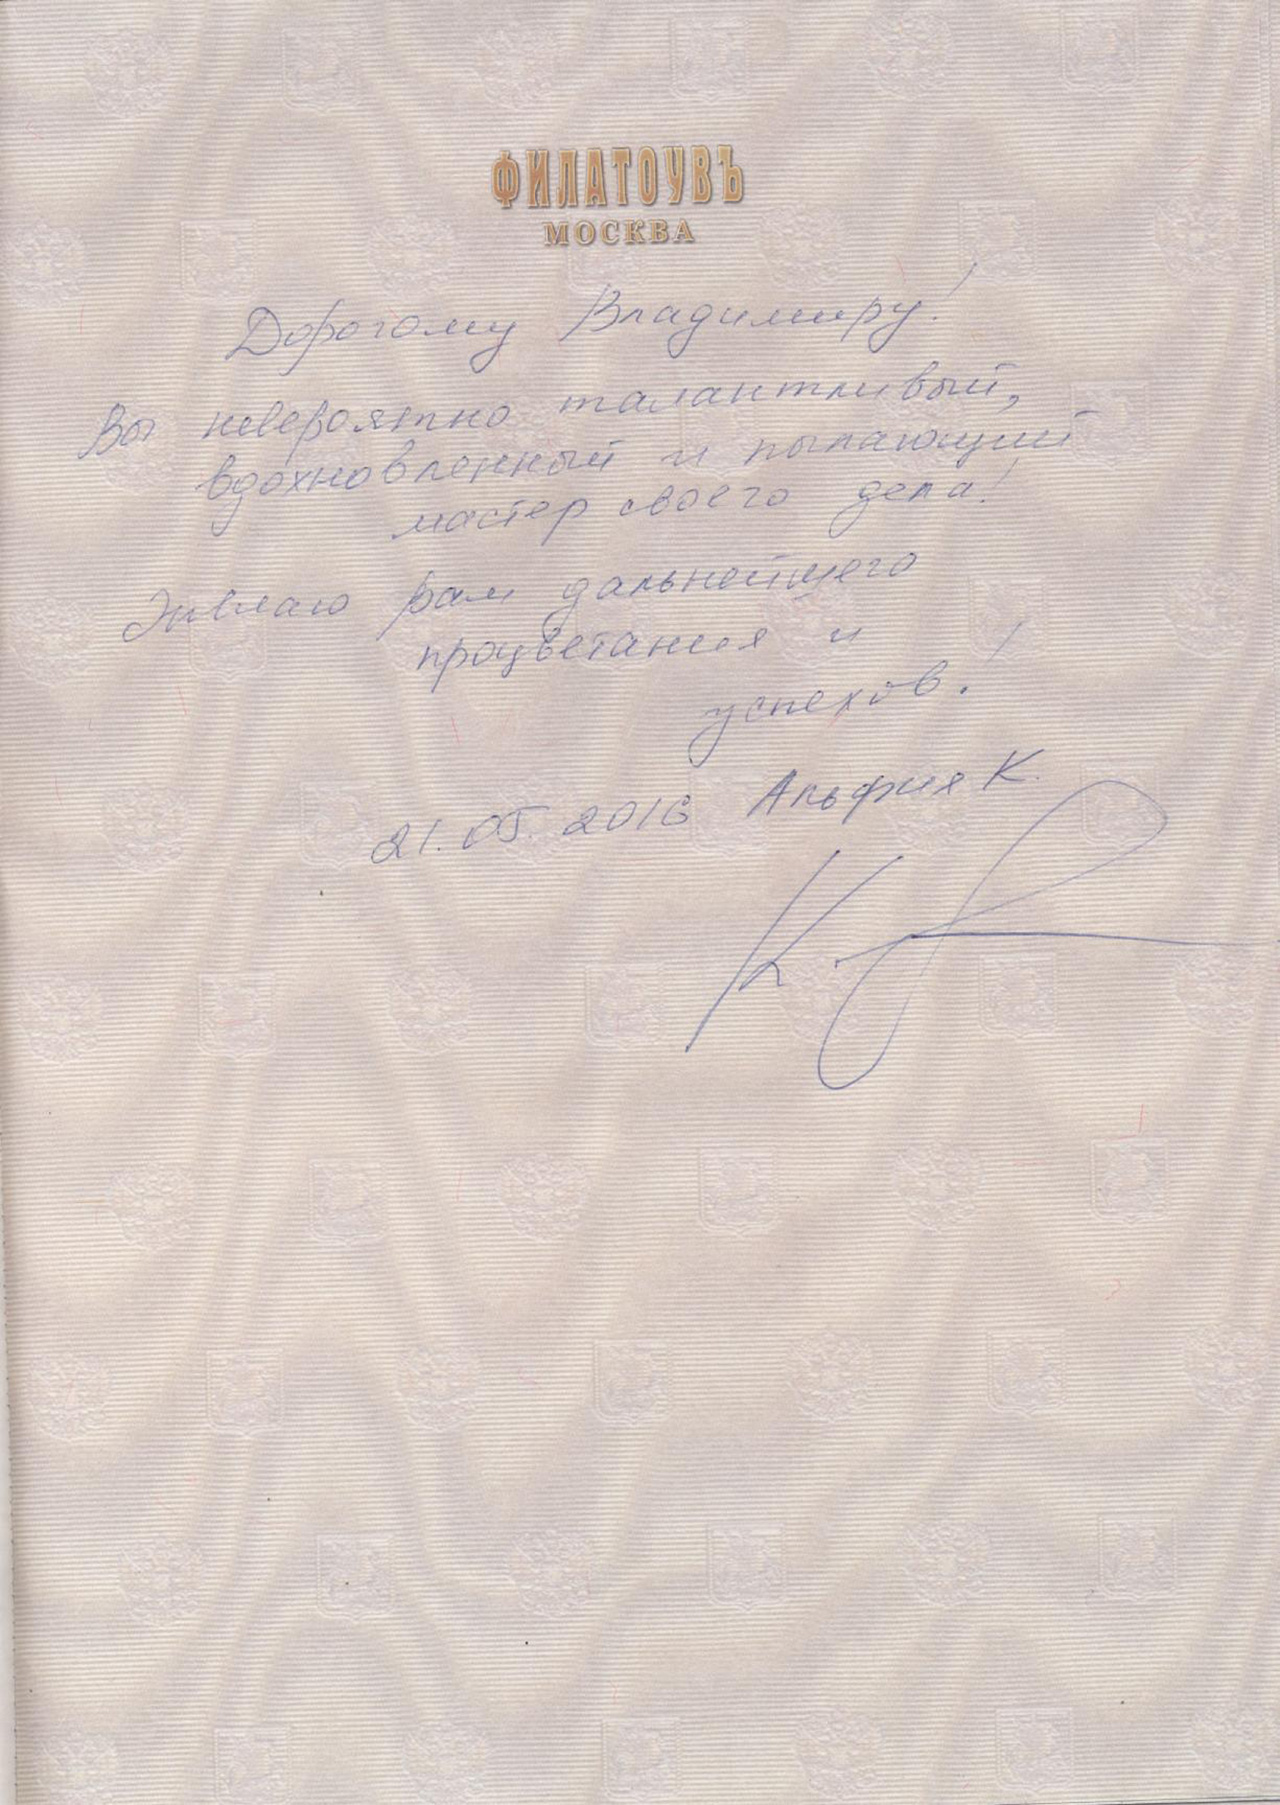 ФИЛАТОУВЪ
МОСКВА
Дорогому Владимиру!
Вы невероятно талантливый,
вдохновленный и пылающий
мастер своего дела!
Желаю Вам дальнейшего
процветания и
успехов!
21.05.2016 Альфия К.